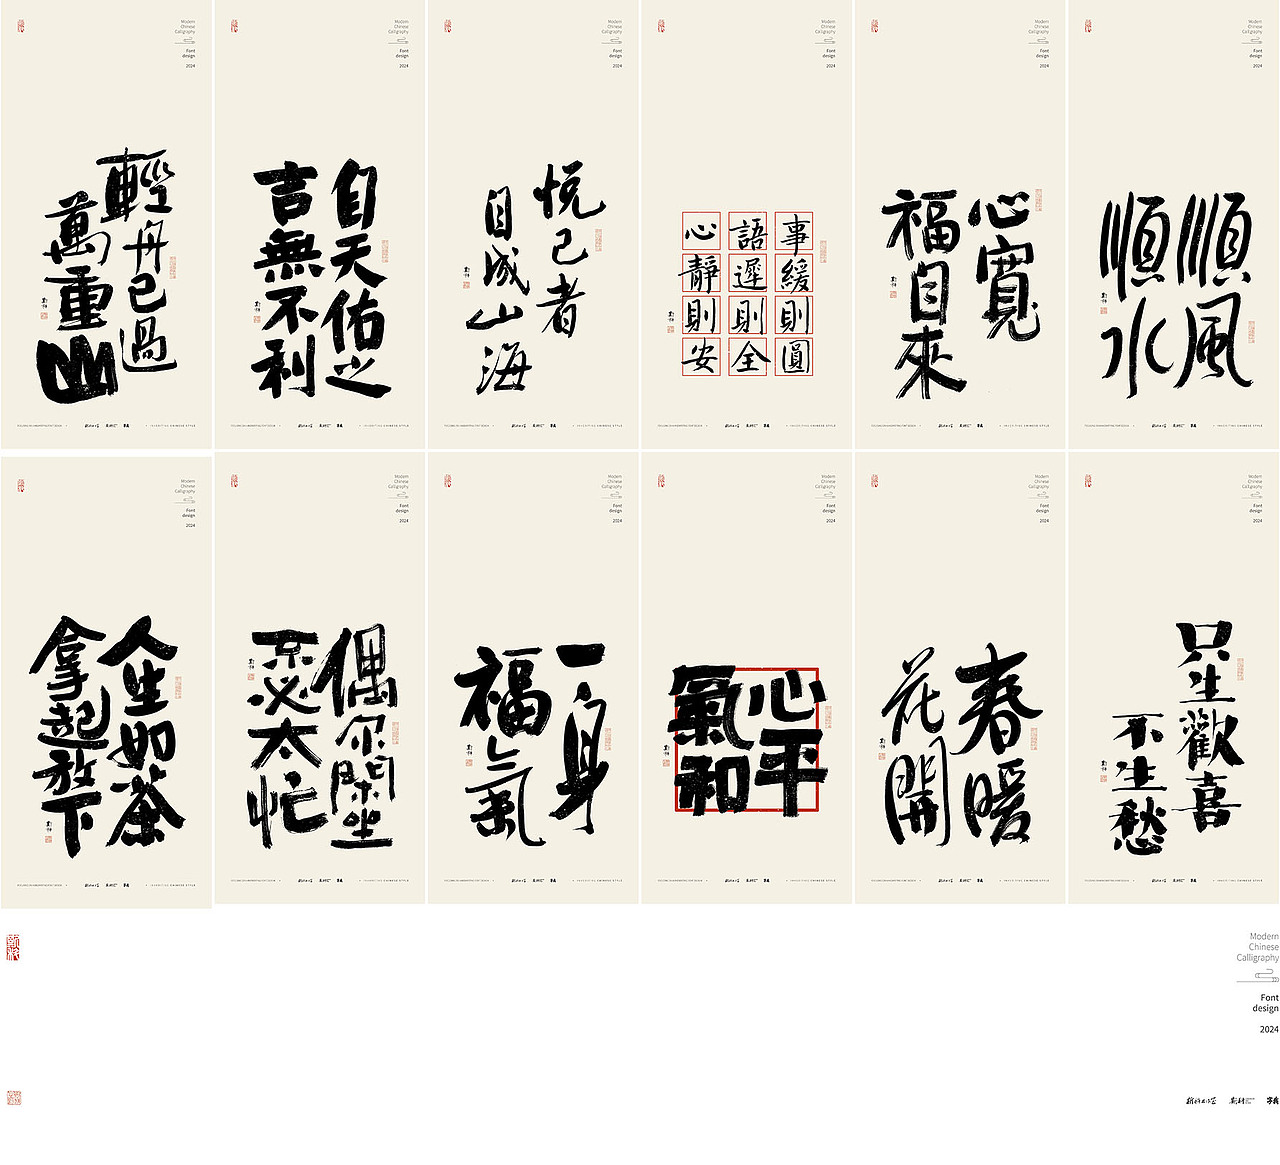 Modern
Chinese
Calligraphy
Font
design
2024
輕舟已過
萬重山
Modern
Chinese
Calligraphy
Font
design
2024
自天佑之
吉無不利
Modern
Chinese
Calligraphy
Font
design
2024
悦己者
自成山海
Modern
Chinese
Calligraphy
Font
design
2024
事緩則圓
語遲則全
心靜則安
Modern
Chinese
Calligraphy
Font
design
2024
心寬
福自來
Modern
Chinese
Calligraphy
Font
design
2024
順風
順水
Modern
Chinese
Calligraphy
Font
design
2024
人生如茶
拿起放下
Modern
Chinese
Calligraphy
Font
design
2024
偶尔閑坐
不必太忙
Modern
Chinese
Calligraphy
Font
design
2024
一身
福氣
Modern
Chinese
Calligraphy
Font
design
2024
心平
氣和
Modern
Chinese
Calligraphy
Font
design
2024
春暖
花開
Modern
Chinese
Calligraphy
Font
design
2024
只生歡喜
不生愁
Modern
Chinese
Calligraphy
Font
design
2024